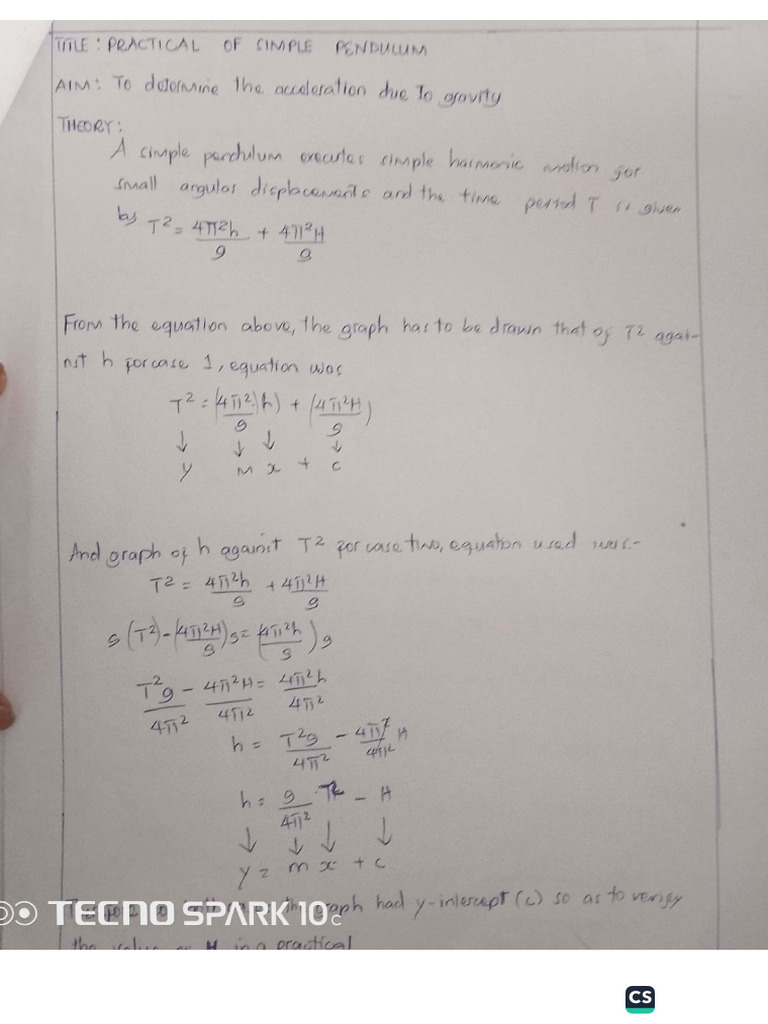 TITLE: PRACTICAL OF SIMPLE PENDULUM
AIM: To determine the acceleration due to gravity
THEORY:
A simple pendulum executes simple harmonic motion for
small angular displacements and the time period T is given
by T² = 4π²h/g + 4π²H/g
From the equation above, the graph has to be drawn that of T² agai-
nst h for case 1, equation was
T² = (4π²/g)(h) + (4π²H/g)
↓ ↓ ↓ ↓
y m x + c
And graph of h against T² for case two, equation used was:-
T² = 4π²h/g + 4π²H/g
g(T²) - (4π²H/g)g = (4π²h/g)g
T²g/4π² - 4π²H/4π² = 4π²h/4π²
h = T²g/4π² - 4π²/4π² H
h = g/4π² · T² - H
↓ ↓ ↓ ↓
y = m x + c
graph had y-intercept (c) so as to verify
the value of H in a practical
TECNO SPARK 10C
CS